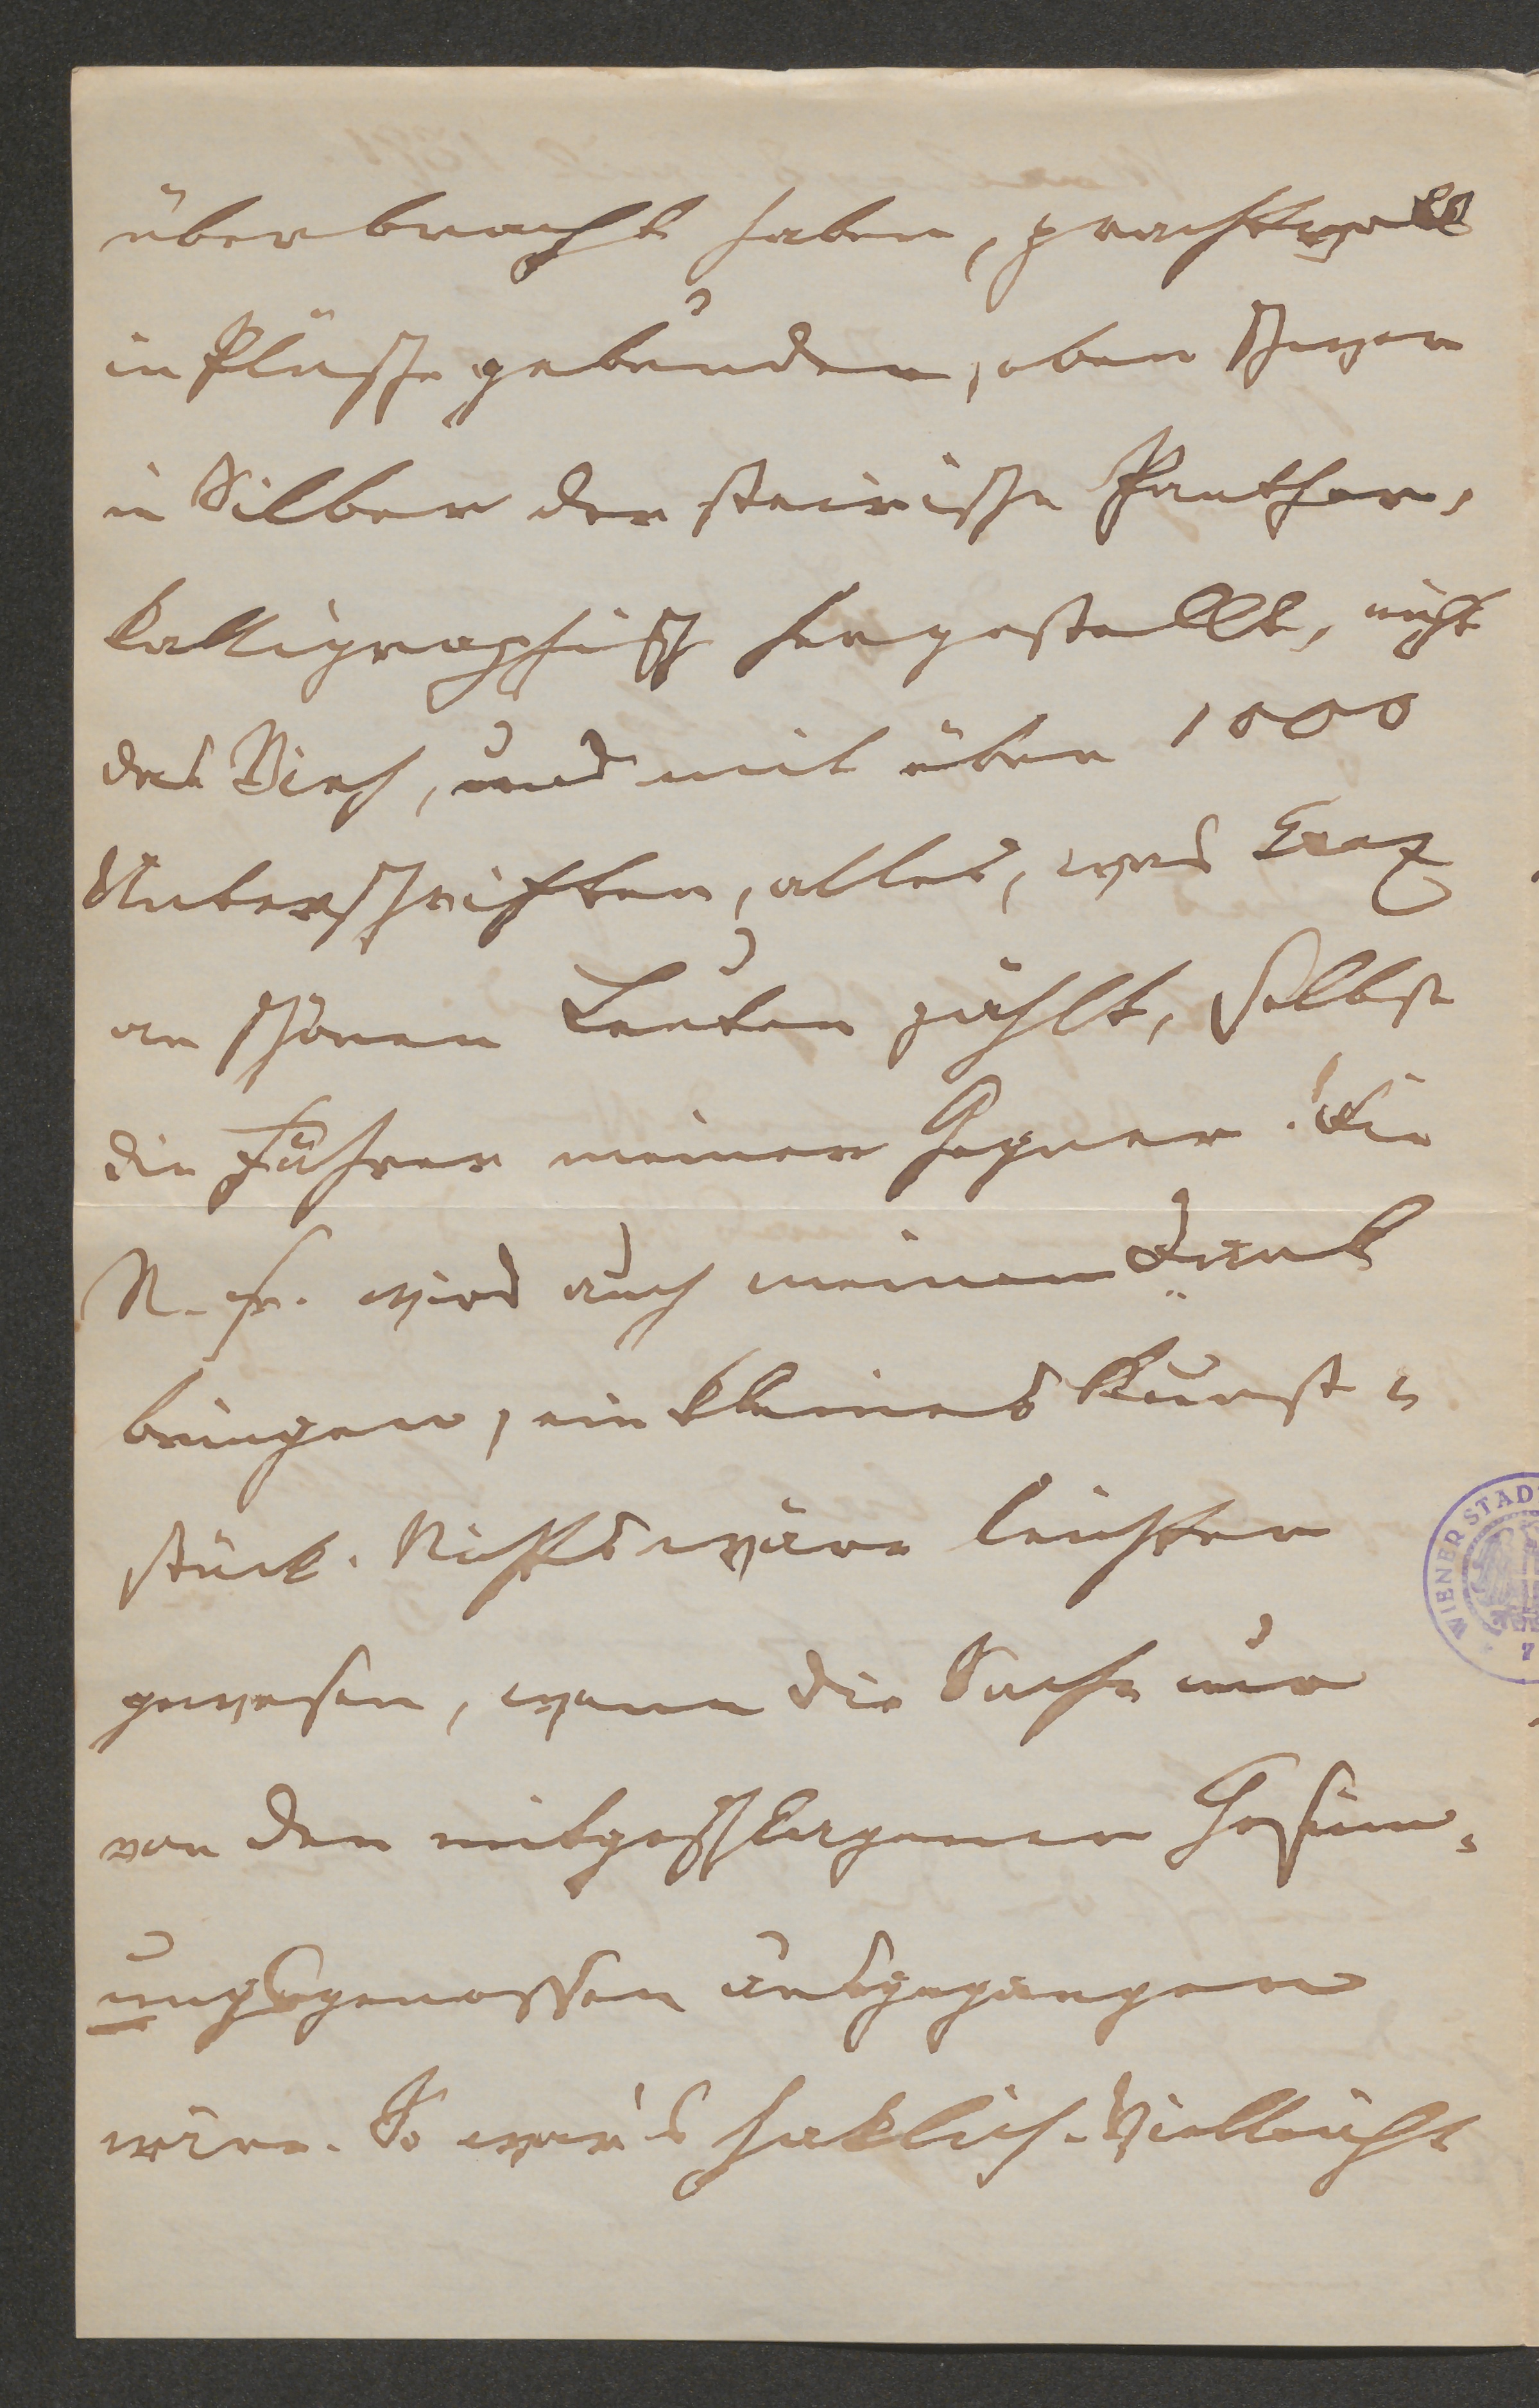 überbracht haben, prachtvoll
in Plüsche gebunden, oben schwer
in Silber der steirische Panther,
kalligraphisch hergestellt, nicht
das Vieh, und mit über 1000
Unterschriften, alles, was Graz
an schönen Leuten zählt, selbst
die Führer meiner Gegner. Die
N. fr. wird auch meinen Dank
bringen, ein kleines Kunst-
stück. Nichts wäre leichter
gewesen, wenn die Sache nur
von den mitgeschlagenen Gesinn-
ungsgenossen ausgegangen
wäre. So war's haklich. Vielleicht
WIENER STAD